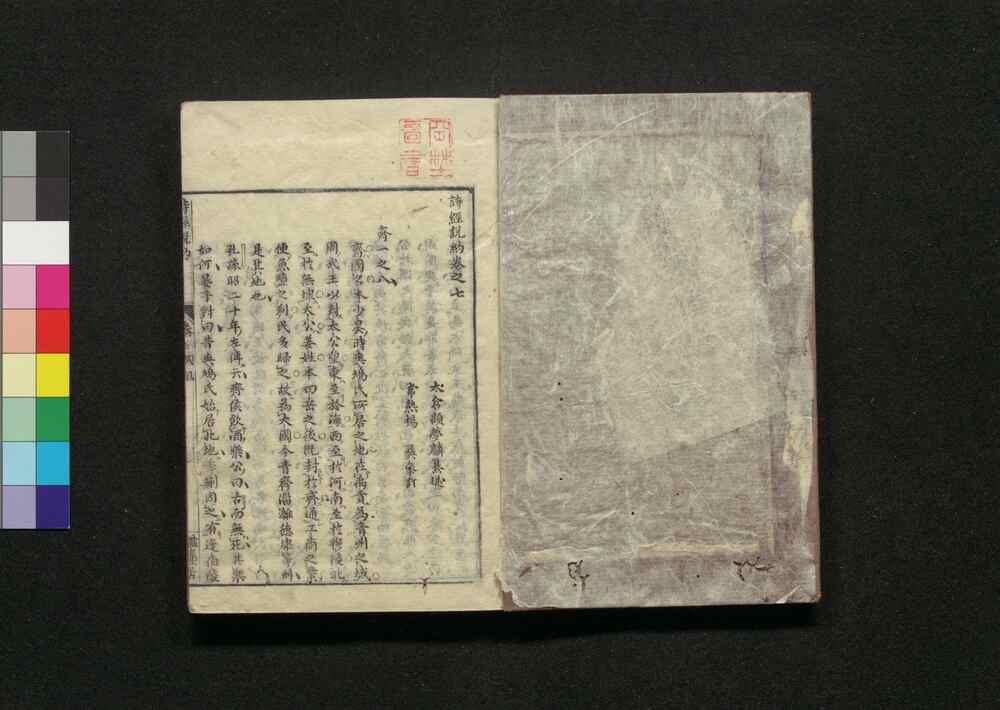 詩經説約卷之七
太倉顧夢麟纂述
常熟楊 彝參訂
齊一之八
齊國名本少昊時爽鳩氏所居之地在禹貢爲青州之域
周武王以封太公望東至於海西至於河南至於穆陵北
至於無棣太公姜姓本四岳之後既封於齊通工商之業
便魚鹽之利民多歸之故爲大國今青齊淄濰德棣等州
是其地也
孔疏昭二十年左傳云齊侯飲酒樂公曰古而無死其樂
如何晏子對曰昔爽鳩氏始居此地季萴因之有逢伯陵
圖書